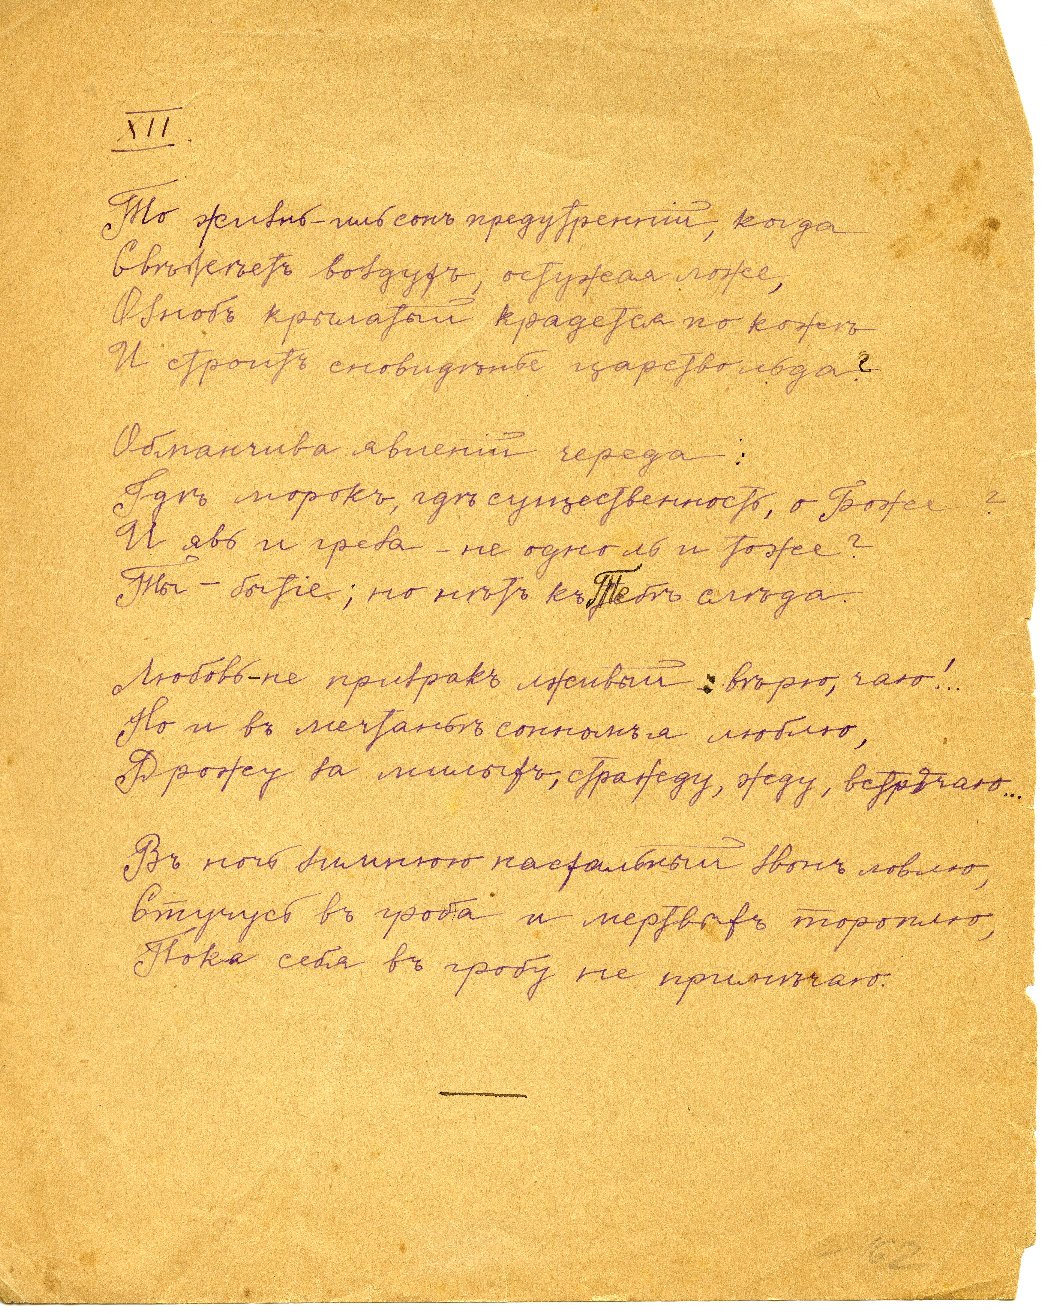 XII.
То жизнь – иль сонъ предутренній, когда
Свѣжѣетъ воздухъ, остужая ложе,
Ознобъ крылатый крадется по кожѣ
И строитъ сновидѣнье царство льда?
Обманчива явленій череда:
Гдѣ морокъ, гдѣ существенность, о Боже?
И явь и греза – не одно ль и тоже?
Ты – бытіе; но нѣтъ къ Тебѣ слѣда.
Любовь – не призракъ лживый: вѣрю, чаю!..
Но и въ мечтаньѣ сонномъ я люблю,
Дрожу за милыхъ, стражду, жду, встрѣчаю...
Въ ночь зимнюю пасхальный звонъ ловлю,
Стучусь въ гроба и мертвыхъ тороплю,
Пока себя въ гробу не примѣчаю.